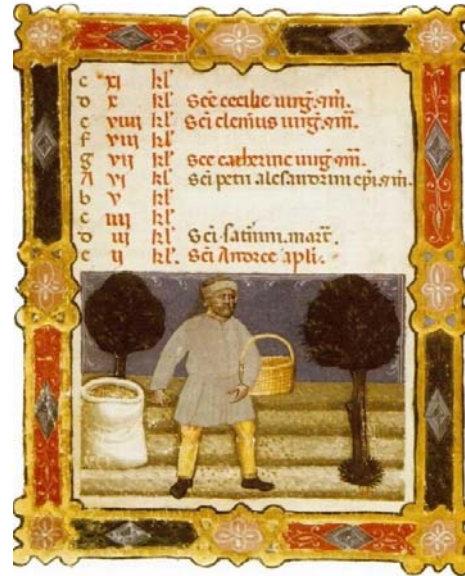 c xi kl'
d x kl' Sce cecilie uirg. ⁊ m̄.
e viiii kl' Sci clemtis uirg. ⁊ m̄.
f viii kl'
g vii kl' Sce catherine uirg. ⁊ m̄.
A vi kl' Sci petri alesandrini epi. ⁊ m̄.
b v kl'
c iiii kl'
d iii kl' Sci. saturini. mart'.
e ii kl'. Sci Andree apli.